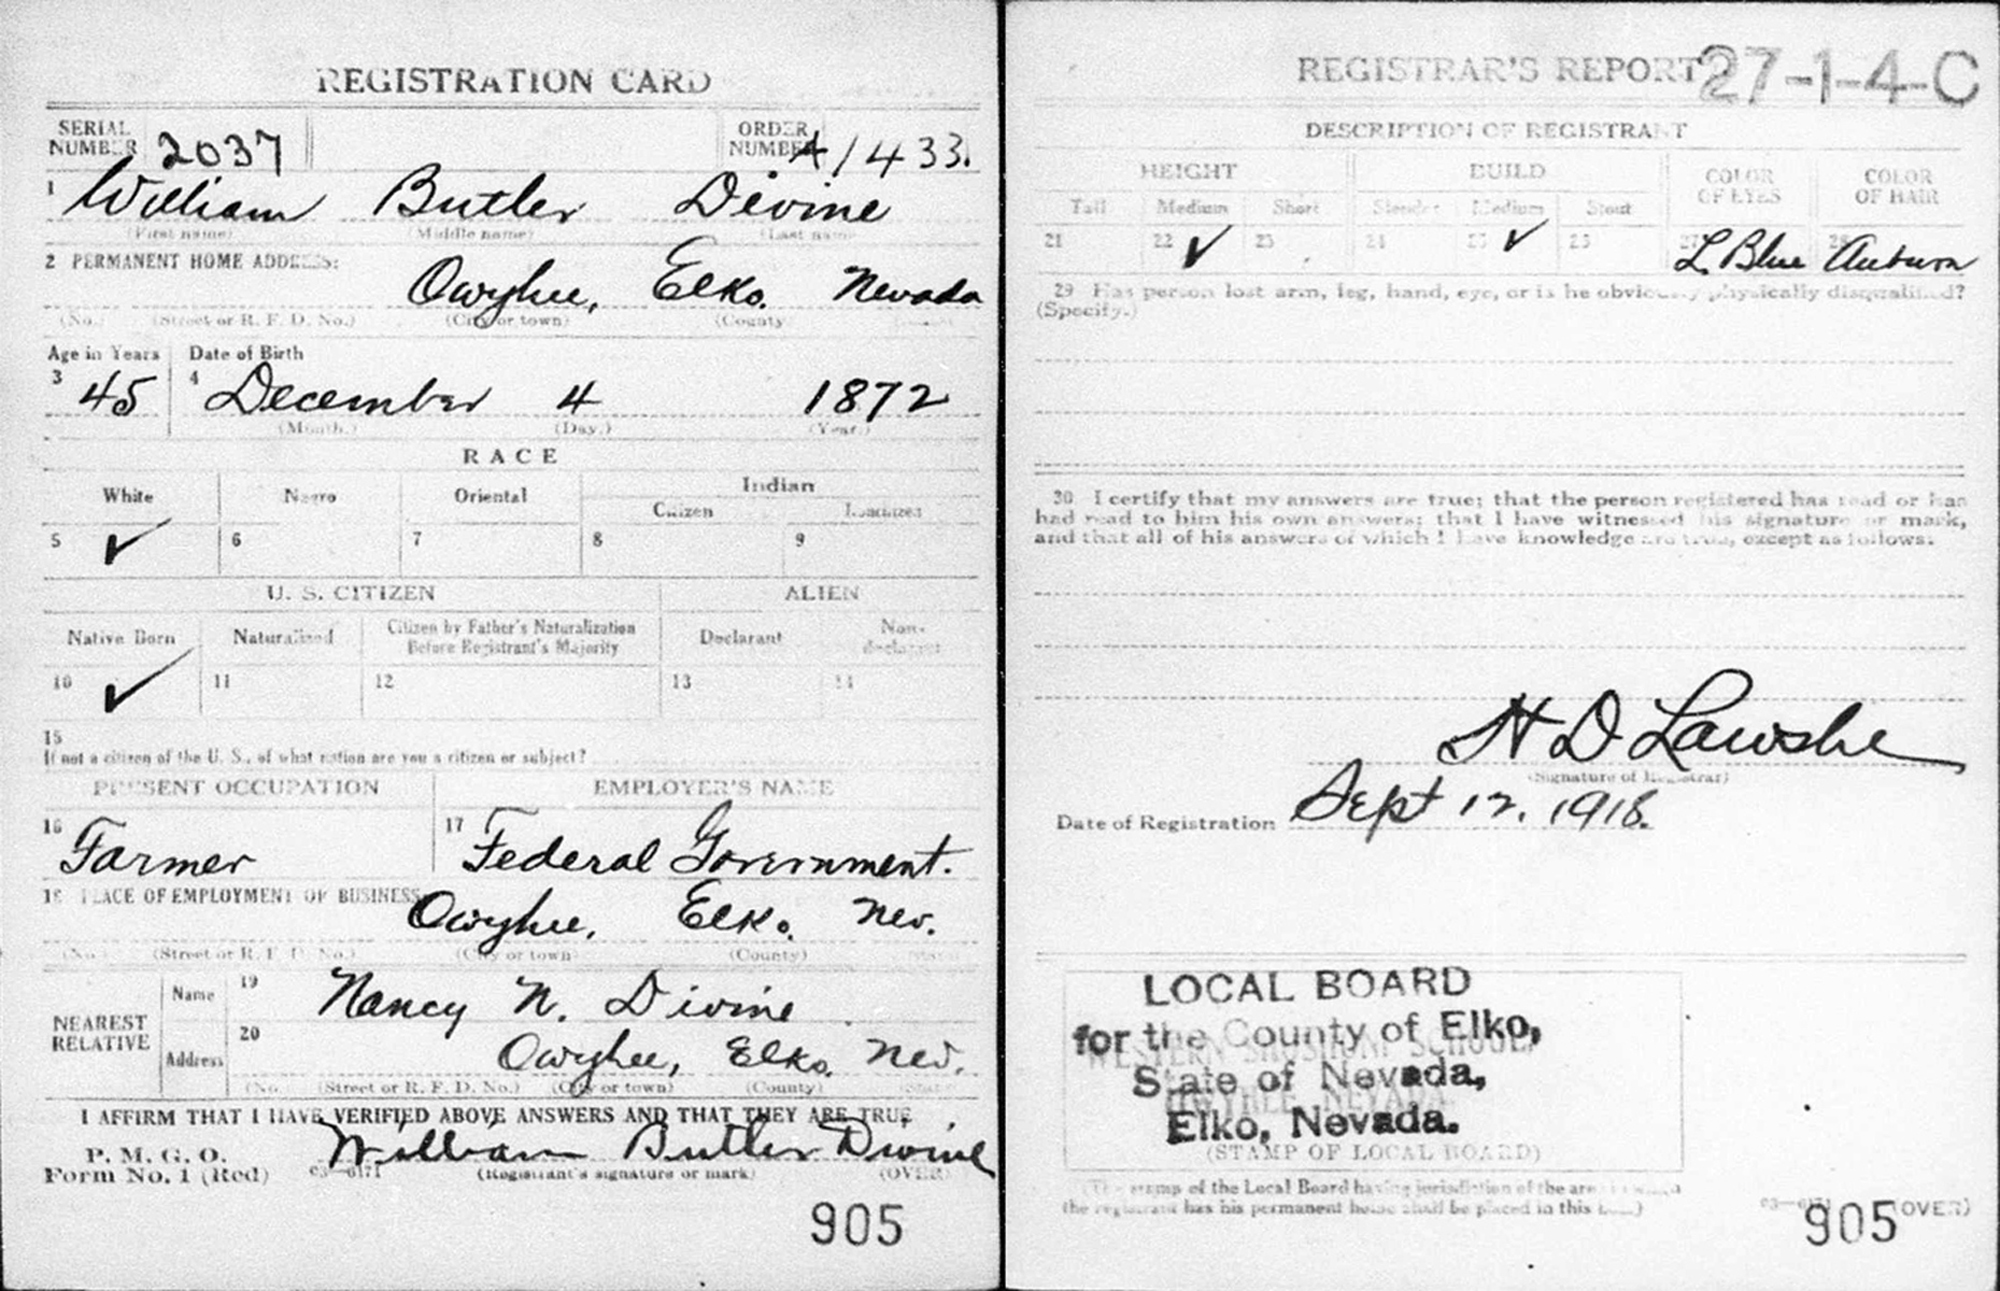 REGISTRATION CARD
SERIAL NUMBER 2037 ORDER NUMBER A1433.
1 William Butler Divine
(First name) (Middle name) (Last name)
2 PERMANENT HOME ADDRESS:
Owyhee, Elko. Nevada
(No.) (Street or R. F. D. No.) (City or town) (County)
Age in Years Date of Birth
3 45 4 December 4 1872
(Month.) (Day.) (Year.)
RACE
White Negro Oriental Indian
Citizen Noncitizen
5 ✓ 6 7 8 9
U. S. CITIZEN ALIEN
Native Born Naturalized Citizen by Father's Naturalization Before Registrant's Majority Declarant Non-declarant
10 ✓ 11 12 13 14
15
If not a citizen of the U. S., of what nation are you a citizen or subject?
PRESENT OCCUPATION EMPLOYER'S NAME
16 Farmer 17 Federal Government.
18 PLACE OF EMPLOYMENT OR BUSINESS
Owyhee, Elko. Nev.
(No.) (Street or R. F. D. No.) (City or town) (County)
NEAREST RELATIVE
Name 19 Nancy N. Divine
Address 20 Owyhee, Elko. Nev.
(No.) (Street or R. F. D. No.) (City or town) (County)
I AFFIRM THAT I HAVE VERIFIED ABOVE ANSWERS AND THAT THEY ARE TRUE
P. M. G. O.
Form No. 1 (Red) 03—6171 William Butler Divine
(Registrant's signature or mark) (OVER)
905
REGISTRAR'S REPORT 27-1-4-C
DESCRIPTION OF REGISTRANT
HEIGHT BUILD COLOR OF EYES COLOR OF HAIR
Tall Medium Short Slender Medium Stout
21 22 ✓ 23 24 25 ✓ 26 27 L Blue 28 Auburn
29 Has person lost arm, leg, hand, eye, or is he obviously physically disqualified?
(Specify.)
30 I certify that my answers are true; that the person registered has read or has
had read to him his own answers; that I have witnessed his signature or mark,
and that all of his answers of which I have knowledge are true, except as follows:
H D Lawshe
(Signature of Registrar)
Date of Registration Sept 12. 1918.
LOCAL BOARD
for the County of Elko,
WESTERN SHOSHONE SCHOOL,
State of Nevada,
OWYHEE NEVADA
Elko, Nevada.
(STAMP OF LOCAL BOARD)
(The stamp of the Local Board having jurisdiction of the area in which
the registrant has his permanent home shall be placed in this box.)
03—6171 (OVER)
905